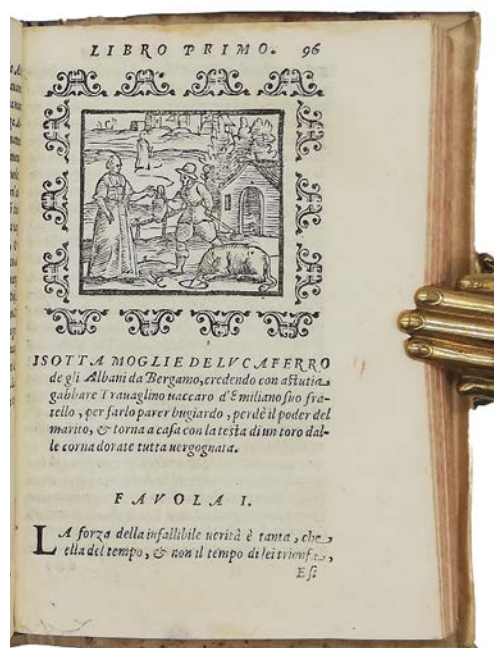 LIBRO PRIMO. 96
ISOTTA MOGLIE DE LVCAFERRO
de gli Albani da Bergamo, credendo con astutia
gabbare Trauaglino uaccaro d'Emiliano suo fra-
tello, per farlo parer bugiardo, perdè il poder del
marito, & torna a casa con la testa di un toro dal-
le corna dorate tutta uergognata.
FAVOLA I.
LA forza della infallibile uerità è tanta, che
ella del tempo, & non il tempo di lei trionfa,
Esi